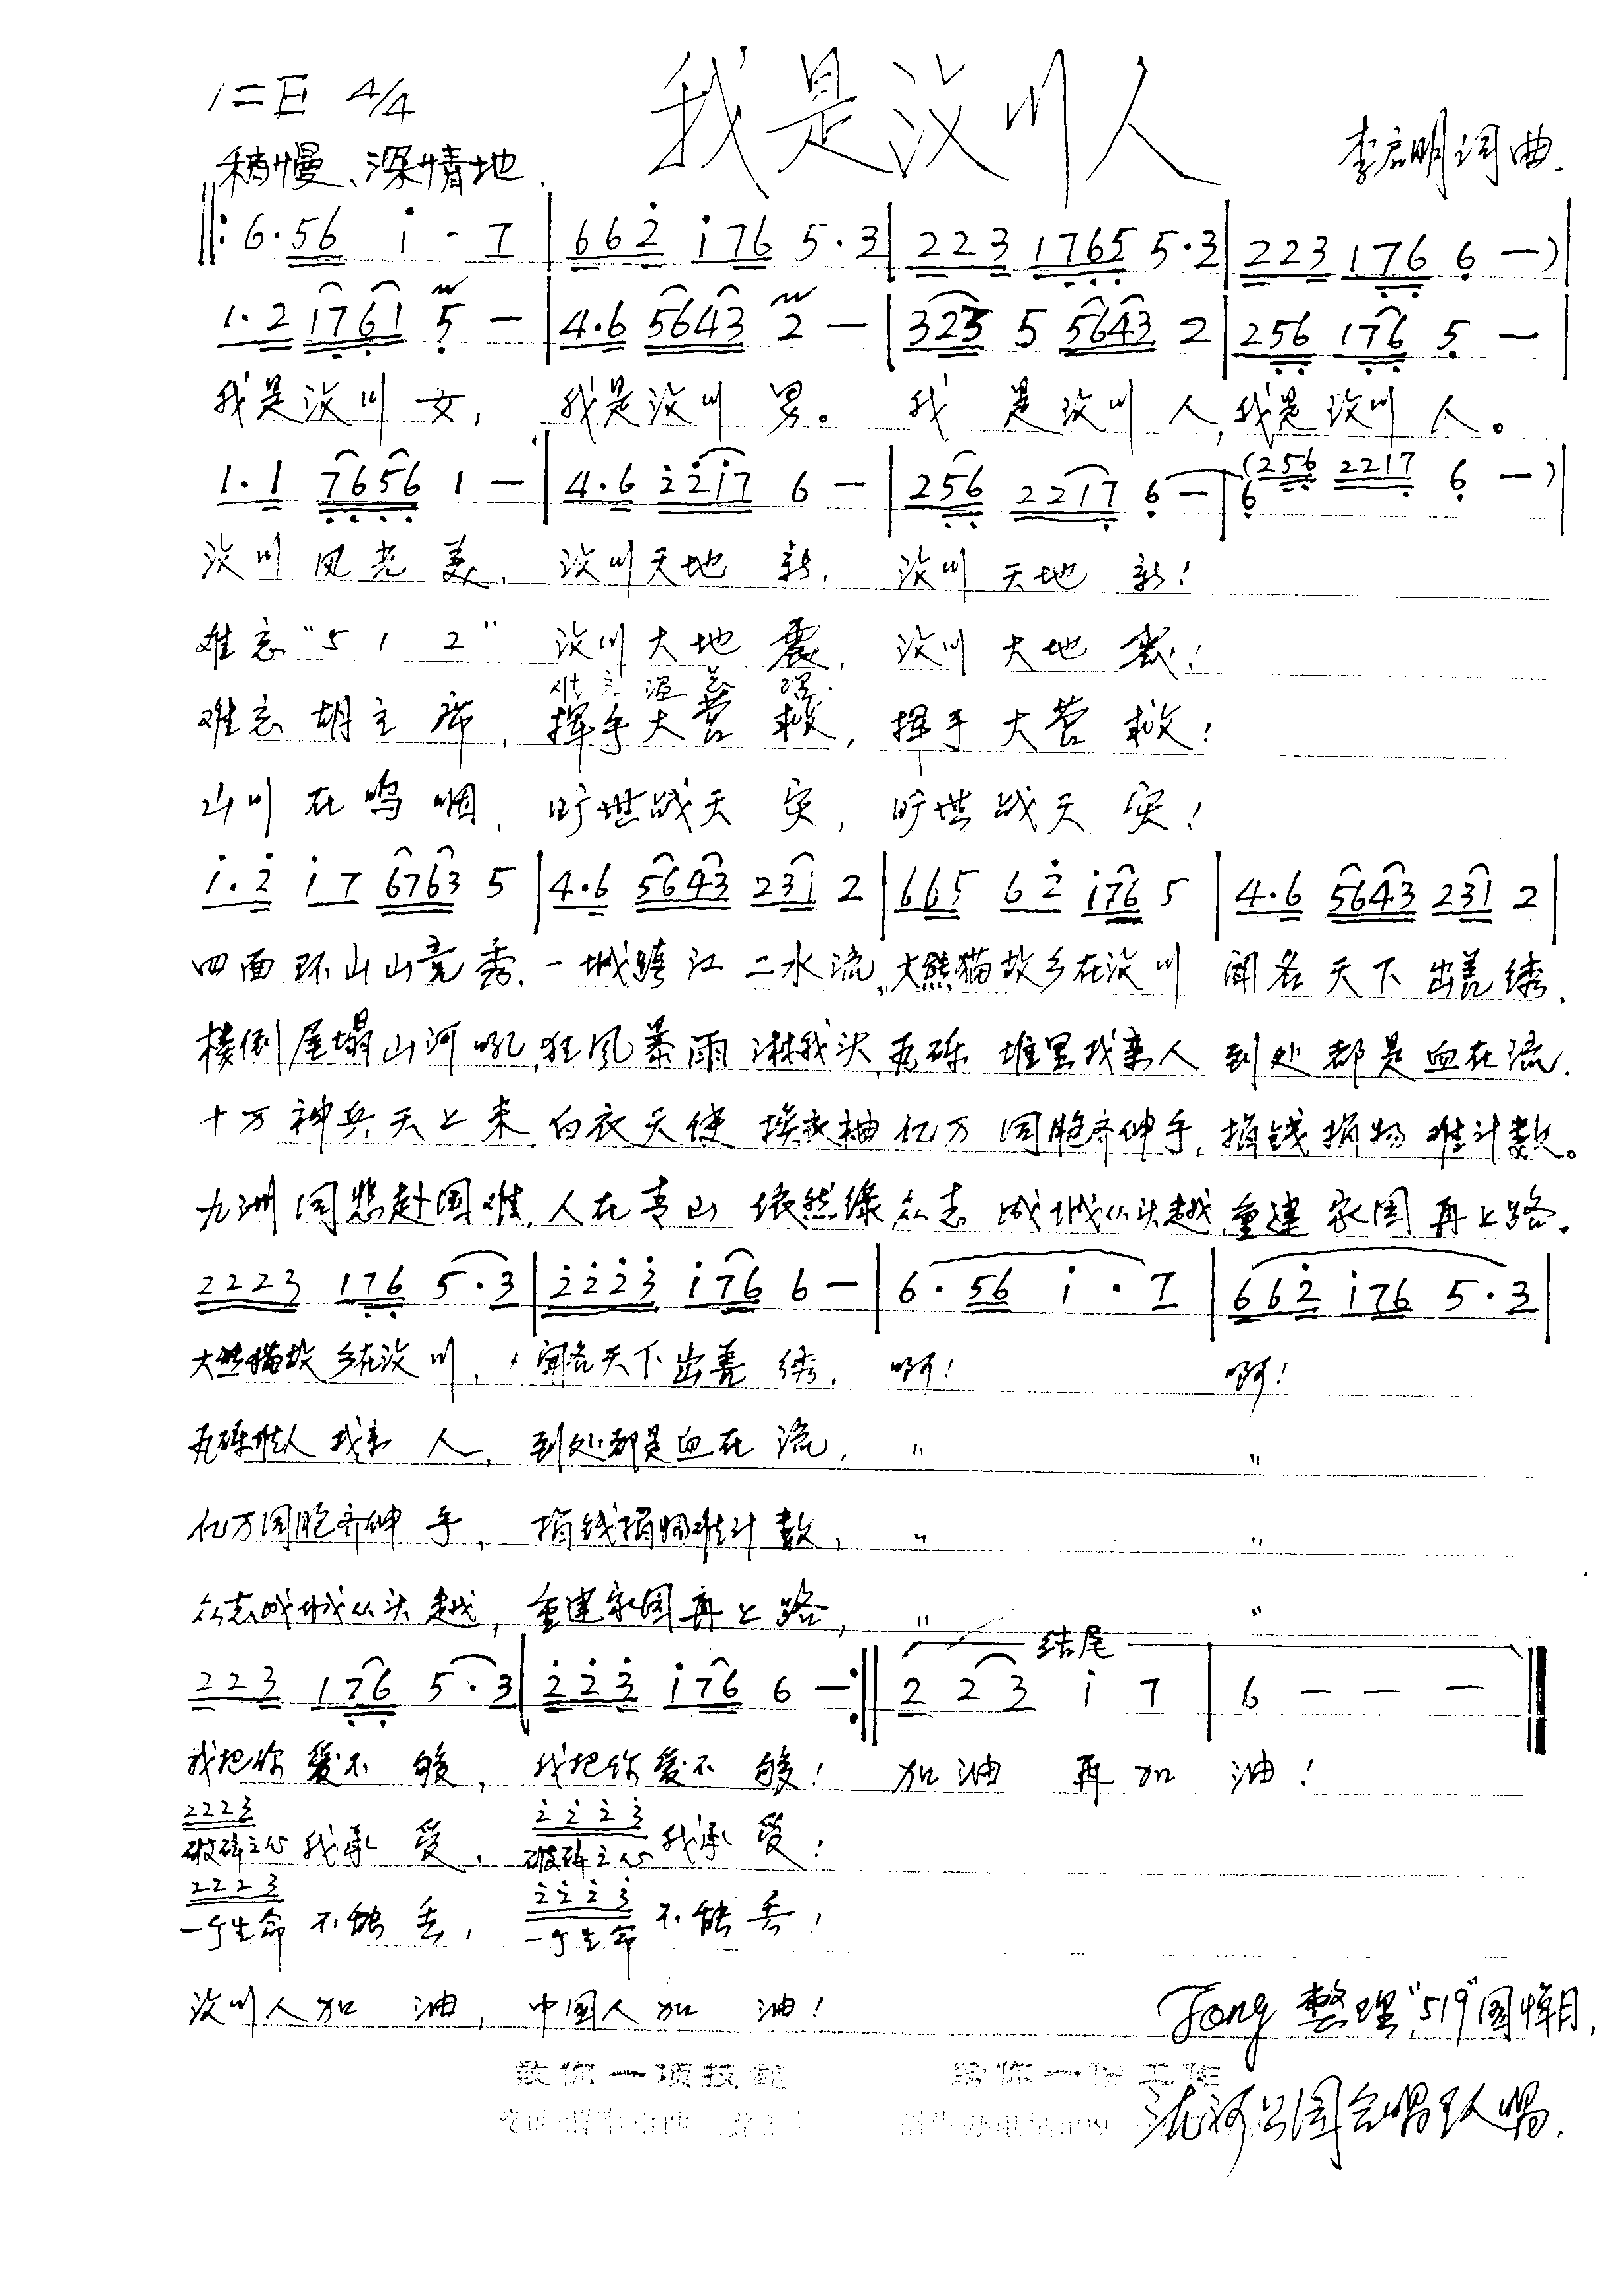 1=E 4/4
我是汶川人
稍慢、深情地
李启明词曲.
‖: 6·56 i - 7 | 662 i76 5·3 | 223 1765 5·3 | 223 176 6 —)|
1·2 1761 5 — | 4·6 5643 2 — | 323 5 5643 2 | 256 176 5 — |
我是汶川女, 我是汶川男。 我是汶川人,我是汶川人。
1·1 7656 1 — | 4·6 2217 6 — | 256 2217 6 — | 6 (256 2217 6 —)|
汶川风光美, 汶川天地新, 汶川天地新!
难忘"512" 汶川大地震, 汶川大地震!
难忘温总理.
难忘胡主席, 挥手大营救, 挥手大营救!
山川在鸣咽, 旷世战天灾, 旷世战天灾!
i·2 i7 6763 5 | 4·6 5643 231 2 | 665 62 i76 5 | 4·6 5643 231 2 |
四面环山山竞秀, 一城跨江二水流,大熊猫故乡在汶川 闻名天下出羌绣,
楼倒屋塌山河吼,狂风暴雨淋我头,瓦砾堆里找亲人 到处都是血在流.
十万神兵天上来 白衣天使挨衣袖 亿万同胞齐伸手, 捐钱捐物难计数。
九洲同悲赴国难,人在青山依然绿 众志成城从头越 重建家园再上路。
2223 176 5·3 | 2223 i76 6 — | 6·56 i·7 | 662 i76 5·3 |
大熊猫故乡在汶川, 闻名天下出羌绣, 啊! 啊!
瓦砾堆人找亲人, 到处都是血在流, " "
亿万同胞齐伸手, 捐钱捐物难计数, " "
众志成城从头越, 重建家园再上路, " "
结尾
223 176 5·3 | 223 i76 6 — :‖ 2 23 i 7 | 6 — — — ‖
我把你爱不够, 我把你爱不够! 加油再加油!
2223 2223
破碎之心我承受, 破碎之心我承受!
2223 2223
一个生命不能丢, 一个生命不能丢!
汶川人加油, 中国人加油!
Fong 整理"519"国悼日,
教你一项技能 给你一份工作
公园合唱队唱.